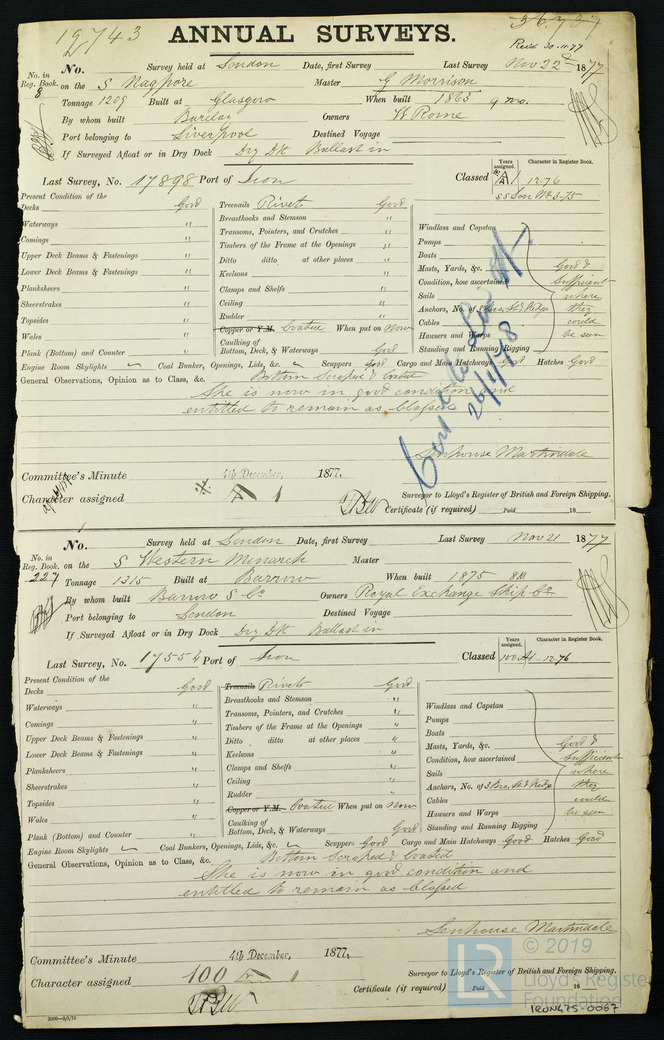 12743 ANNUAL SURVEYS. 36737
Recd 30.11.77
No. Survey held at London Date, first Survey Last Survey Nov 22d 1877
No. in Reg. Book. 8 on the S Nagpore Master G Morrison
Tonnage 1209 Built at Glasgow When built 1865 9 mo.
By whom built Barclay Owners W Rome
Port belonging to Liverpool Destined Voyage
If Surveyed Afloat or in Dry Dock Dry Dk Ballast in
Last Survey, No. 17898 Port of Iron Classed Years assigned. Character in Register Book.
A 1 12.76
SS Lon No 3-75
Present Condition of the
Decks Good Treenails Rivets Good
Waterways " Breasthooks and Stemson " Windlass and Capstan
Comings " Transoms, Pointers, and Crutches " Pumps
Upper Deck Beams & Fastenings " Timbers of the Frame at the Openings " Boats
Lower Deck Beams & Fastenings " Ditto ditto at other places " Masts, Yards, &c. Good &
Planksheers " Keelsons " Condition, how ascertained Sufficient
Sheerstrakes " Clamps and Shelfs " Sails where
Topsides " Ceiling " Anchors, No. of 3 Brs, St & Kedge they
Wales " Rudder " Cables could
Plank (Bottom) and Counter " Copper or Y.M. Coated When put on Now Hawsers and Warps be seen
Caulking of Bottom, Deck, & Waterways Good Standing and Running Rigging
Engine Room Skylights Coal Bunkers, Openings, Lids, &c. Scuppers Good Cargo and Main Hatchways Good Hatches Good
General Observations, Opinion as to Class, &c. Bottom Scraped & Coated
She is now in good condition and
entitled to remain as Classed
26/1/78
Senhouse Martindale
Committee's Minute 4th December, 1877.
Character assigned A 1 Surveyor to Lloyd's Register of British and Foreign Shipping.
Certificate (if required) Paid 18
No. Survey held at London Date, first Survey Last Survey Nov 21 1877
No. in Reg. Book. 227 on the S Western Monarch Master
Tonnage 1315 Built at Barrow When built 1875 8M
By whom built Barrow S Co Owners Royal Exchange Ship Co.
Port belonging to London Destined Voyage
If Surveyed Afloat or in Dry Dock Dry Dk Ballast in
Last Survey, No. 17554 Port of Iron Classed Years assigned. Character in Register Book.
100 A1 -12.76
Present Condition of the
Decks Good Treenails Rivets Good
Waterways " Breasthooks and Stemson " Windlass and Capstan
Comings " Transoms, Pointers, and Crutches " Pumps
Upper Deck Beams & Fastenings " Timbers of the Frame at the Openings " Boats
Lower Deck Beams & Fastenings " Ditto ditto at other places " Masts, Yards, &c. Good &
Planksheers " Keelsons " Condition, how ascertained Sufficient
Sheerstrakes " Clamps and Shelfs " Sails where
Topsides " Ceiling " Anchors, No. of 3 Brs, St & Kedge they
Wales " Rudder " Cables could
Plank (Bottom) and Counter " Copper or Y.M. Coated When put on Now Hawsers and Warps be seen
Caulking of Bottom, Deck, & Waterways Good Standing and Running Rigging
Engine Room Skylights Coal Bunkers, Openings, Lids, &c. Scuppers Good Cargo and Main Hatchways Good Hatches Good
General Observations, Opinion as to Class, &c. Bottom Scraped & Coated
She is now in good condition and
entitled to remain as Classed
Senhouse Martindale
Committee's Minute 4th December, 1877.
Character assigned 100 A 1 Surveyor to Lloyd's Register of British and Foreign Shipping.
Certificate (if required) Paid 18
LR © 2019
Lloyd's Register
Foundation
IRON475-0067